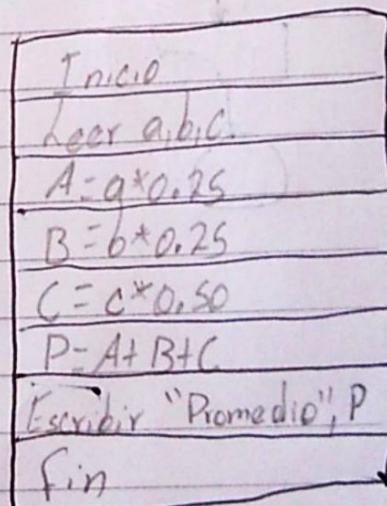 Inicio
Leer a,b,c.
A=a*0.25
B=b*0.25
C=c*0.50
P=A+B+C
Escribir "Promedio", P
fin